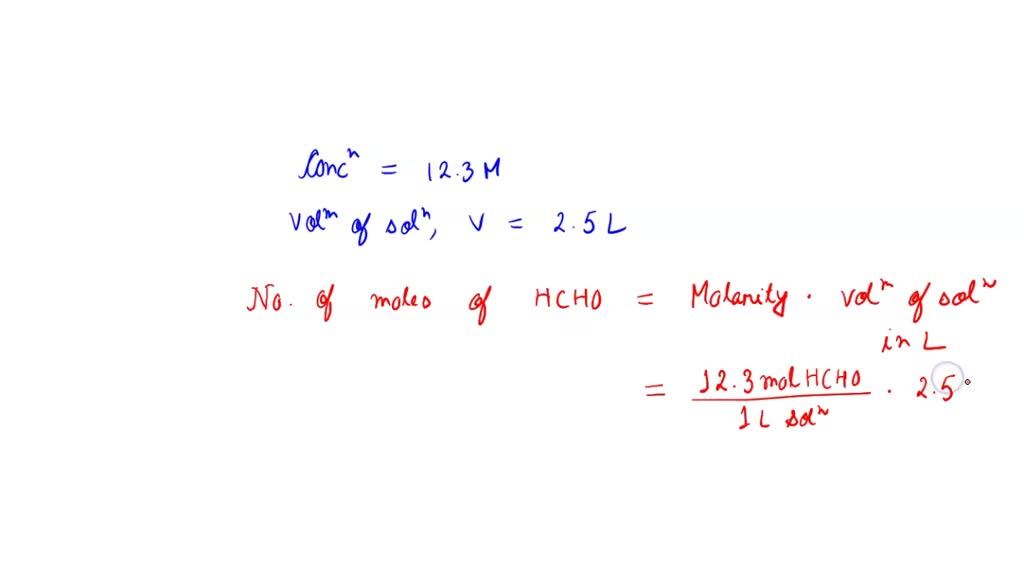 Concⁿ = 12.3 M
Volᵐ of solⁿ, V = 2.5 L
No. of moles of HCHO = Molarity · volᵐ of solⁿ
in L
= 12.3 mol HCHO / 1 L solⁿ · 2.5